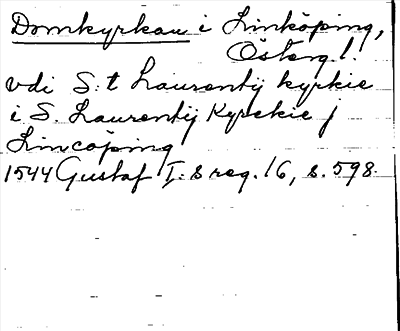 Domkyrkan i Linköping,
Österg l.
vdi S:t Laurentij kyrkie
i S. Laurentij Kyrckie j
Lincöping
1544 Gustaf I:s reg. 16, s. 598.